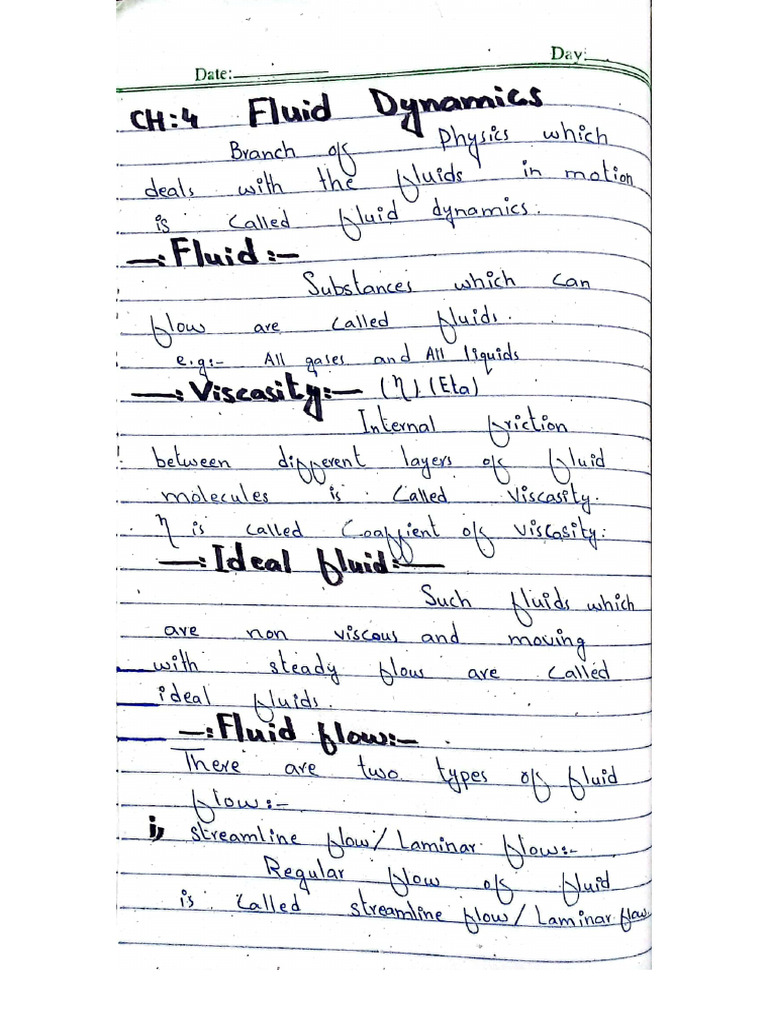 Day:
Date:
CH:4 Fluid Dynamics
Branch of Physics which
deals with the fluids in motion
is called fluid dynamics.
—:Fluid:—
Substances which can
flow are called fluids.
e.g:- All gases and All liquids
—:Viscasity:— (η) (Eta)
Internal friction
between different layers of fluid
molecules is called viscasity.
η is called Coaffient of viscasity.
—:Ideal fluid:—
Such fluids which
are non viscous and moving
with steady flow are called
ideal fluids.
—:Fluid flow:—
There are two types of fluid
flow:-
i, streamline flow/Laminar flow:-
Regular flow of fluid
is called streamline flow/Laminar flow.